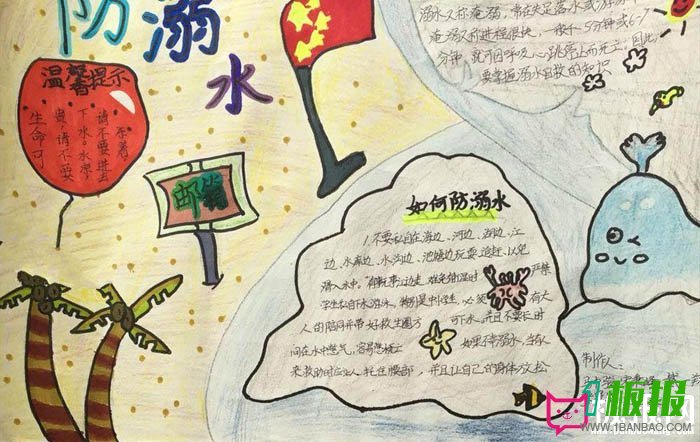 防溺水
温馨提示
生命可
贵,请不要
下水。水深,
请不要进去
邮箱
溺水又称淹溺,常在失足落水或游泳
淹溺的进程很快,一般十5分钟或6~7
分钟,就可因呼吸心跳停止而死亡,因此,
要掌握溺水自救的知识
如何防溺水
1.不要私自在海边、河边、湖边、江
边、水库边、水沟边、池塘边玩耍、追赶,以免
滑入水中。
严禁
学生私自下水游泳,特别是中小学生,必须
有大
人的陪同并带好救生圈
下水,并且不要长时
间在水中憋气,
如果不幸溺水,当有人
来救助时应让人托住腰部,并且让自己的身体放松
制作人:
板报
WWW.1BANBAO.COM